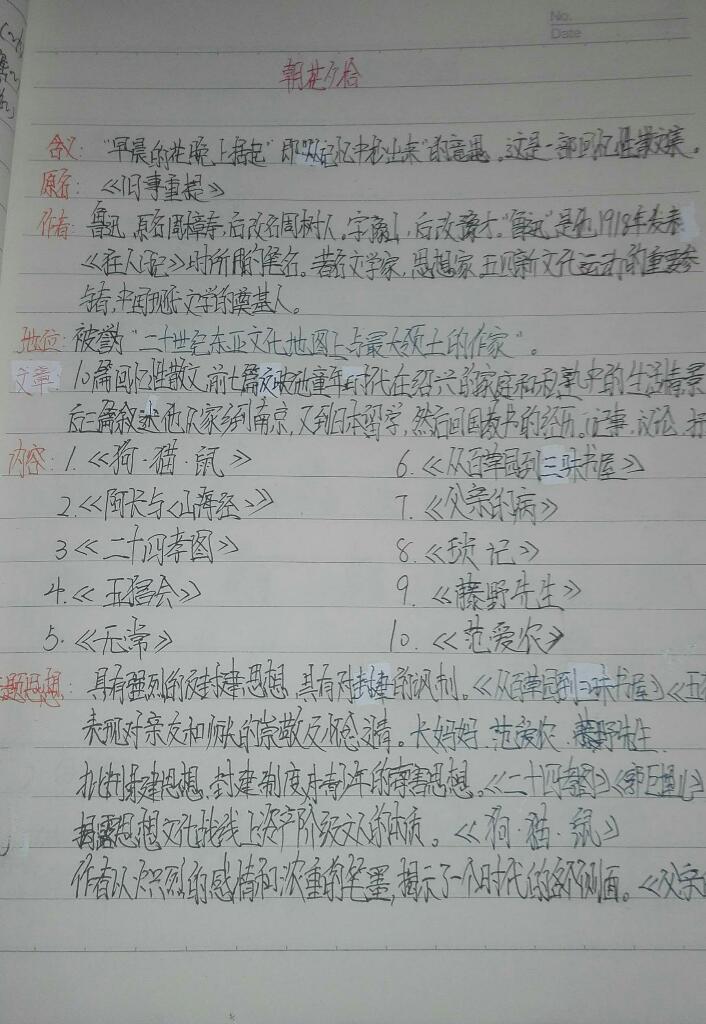 No.
Date
朝花夕拾
含义: "早晨的花晚上拾起"即"从记忆中抄出来"的意思。这是一部回忆性散文集。
原名: 《旧事重提》
作者: 鲁迅,原名周樟寿,后改名周树人。字豫山,后改豫才。"鲁迅"是他1918年发表
《狂人日记》时所用的笔名。著名文学家,思想家,五四新文化运动的重要参
与者,中国现代文学的奠基人。
地位: 被誉为"二十世纪东亚文化地图上占最大领土的作家"。
文章: 10篇回忆性散文,前七篇反映他童年时代在绍兴的家庭和私塾中的生活情景
后三篇叙述他从家乡到南京,又到日本留学,然后回国教书的经历。记事,议论,抒
内容: 1.《狗·猫·鼠》 6.《从百草园到三味书屋》
2.《阿长与《山海经》》 7.《父亲的病》
3《二十四孝图》 8.《琐记》
4.《五猖会》 9.《藤野先生》
5.《无常》 10.《范爱农》
题思想: 具有强烈的反封建思想,具有对封建的讽刺。《从百草园到三味书屋》《五
表现对亲友和师长的崇敬及怀念之情。长妈妈.范爱农.藤野先生.
批判封建思想.封建制度对青少年的毒害思想。《二十四孝图》《郭巨埋儿》
揭露思想文化战线上资产阶级文人的本质。《狗·猫·鼠》
作者以炽烈的感情和浓重的笔墨,揭示了一个时代的各个侧面。《父亲